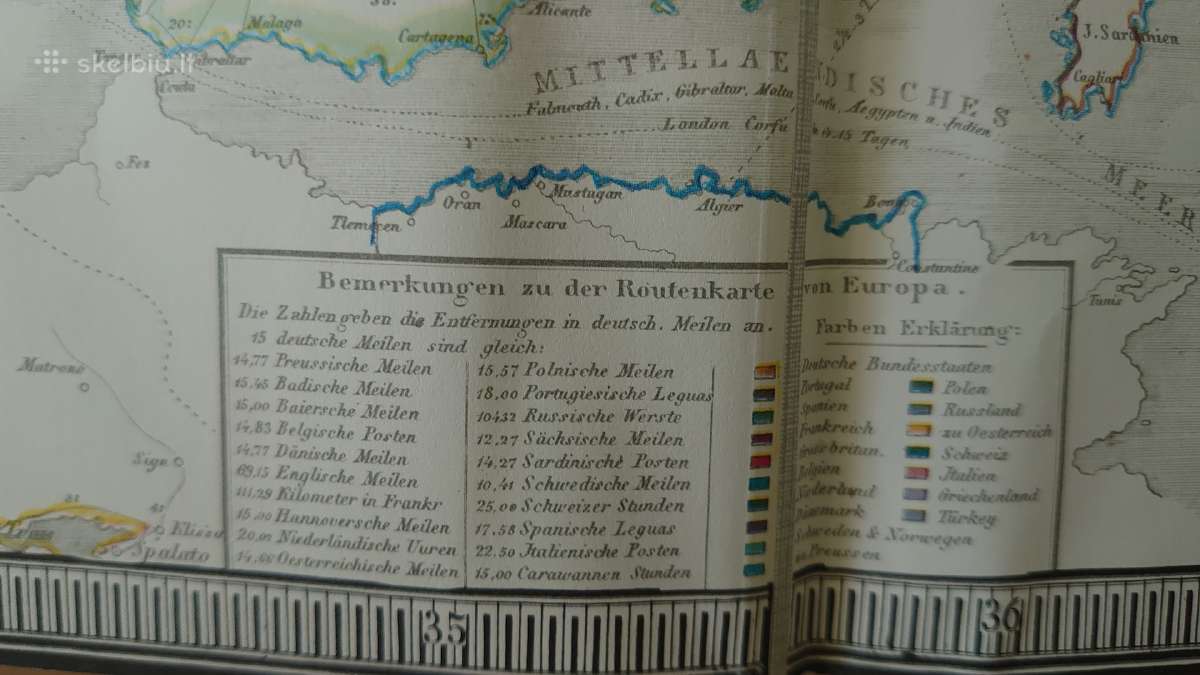 skelbiu.lt
20:
Malaga
Cartagena
Alicante
Gibraltar
Ceuta
MITTELLAENDISCHES
MEER
J. Sardinien
Cagliari
Falmouth, Cadix, Gibraltar, Malta
Corfu, Aegypten u. Indien
London Corfu
Tagen
Fez
Oran
Mustugan
Mascara
Algier
Tlemecen
Constantine
Tunis
Bemerkungen zu der Routenkarte von Europa.
Die Zahlen geben die Entfernungen in deutsch. Meilen an.
15 deutsche Meilen sind gleich:
14,77 Preussische Meilen
15,45 Badische Meilen
15,00 Baiersche Meilen
14,83 Belgische Posten
14,77 Dänische Meilen
69,15 Englische Meilen
111,29 Kilometer in Frankr
15,00 Hannoversche Meilen
20,00 Niederländische Uuren
Oesterreichische Meilen
15,57 Polnische Meilen
18,00 Portugiesische Leguas
104,32 Russische Werste
12,27 Sächsische Meilen
14,27 Sardinische Posten
10,41 Schwedische Meilen
25,00 Schweizer Stunden
17,58 Spanische Leguas
22,50 Italienische Posten
15,00 Carawannen Stunden
Farben Erklärung:
Deutsche Bundesstaaten
Portugal
Spanien
Frankreich
Grossbritan.
Belgien
Niederland
Dänemark
Schweden & Norwegen
Preussen
Polen
Russland
zu Oesterreich
Schweiz
Italien
Griechenland
Türkey
Matrone
Siga
Spalato
35
36